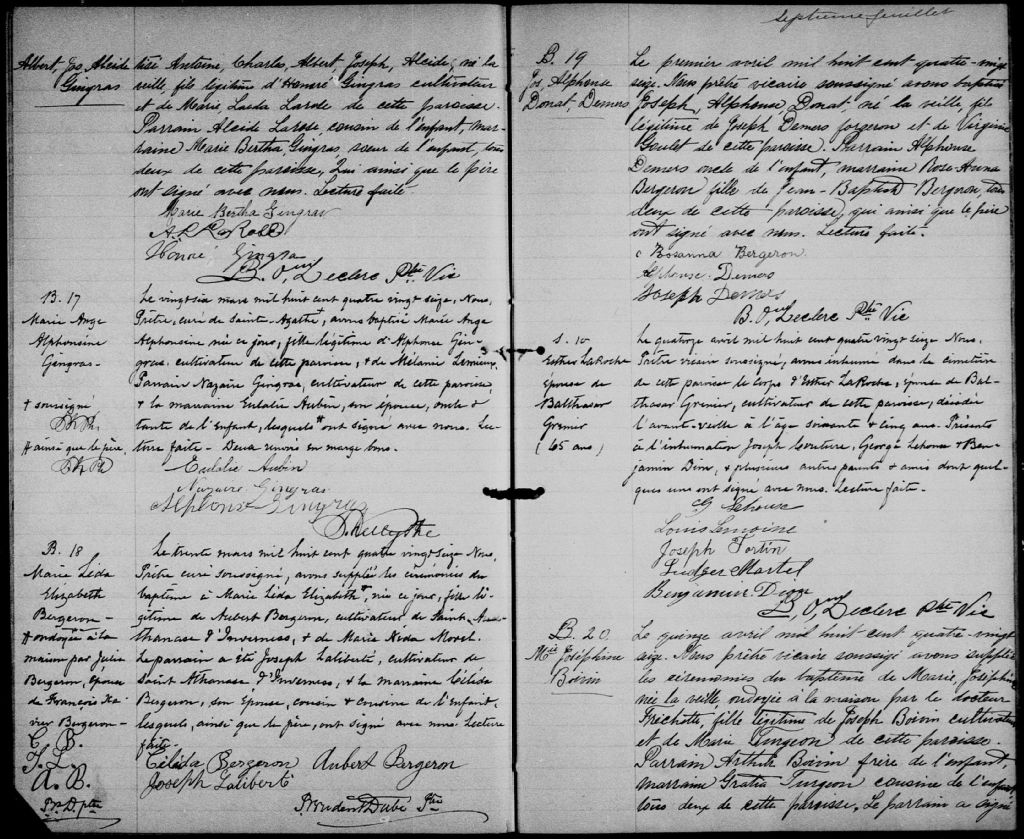 Albert, Jos, Alcide
Gingras
tisé Antoine, Charles, Albert, Joseph, Alcide, né la
veille, fils légitime d'Honoré Gingras cultivateur
et de Marie Larose de cette paroisse.
Parrain Alcide Larose, cousin de l'enfant, mar-
raine Marie Bertha Gingras, sœur de l'enfant, tous
deux de cette paroisse, Qui ainsi que le père
ont signé avec nous. Lecture faite
Marie Bertha Gingras
A. LaRose
Honoré Gingras
B. O. Leclerc Ptre Vic
B. 17
Marie Ange
Alphonsine
Gingras.
+ soussigné
# ainsi que le père,
Le vingt six mars mil huit cent quatre vingt seize, Nous,
Prêtre, curé de Sainte-Agathe+, avons baptisé Marie Ange
Alphonsine née ce jour, fille légitime d'Alphonse Gin-
gras, cultivateur de cette paroisse, & de Mélanie Lemieux.
Parrain Nazaire Gingras, cultivateur de cette paroisse,
& la marraine Eulalie Aubin, son épouse, oncle &
tante de l'Enfant, lesquels # ont signé avec nous. Lec-
ture faite. Deux renvois en marge bons.
Eulalie Aubin
Nazaire Gingras
Alphonse Gingras
B. 18
Marie Léda
Elizabeth
Bergeron
# ondoyée à la
maison par
Bergeron, épouse
de François Xa-
vier Bergeron
C. B.
J. L.
A. B.
Pr. D. ptre
Le trente mars mil huit cent quatre vingt seize Nous,
Prêtre curé soussigné, avons suppléé les cérémonies du
baptême à Marie Léda Elizabeth #, née ce jour, fille lé-
gitime de Aubert Bergeron, cultivateur de Saint Atha-
thanase d'Inverness, & de Marie Morel.
Le parrain a été Joseph Laliberté, cultivateur de
Saint Athanase d'Inverness, & la marraine Célida
Bergeron, son épouse, cousin & cousine de l'Enfant,
lesquels, ainsi que le père, ont signé avec nous. Lecture
faite.
Célida Bergeron Aubert Bergeron
Joseph Laliberté
Prudent Dubé Ptre
septieme feuillet
B. 19
Jos, Alphonse
Donat, Demers
Le premier avril mil huit cent quatre-vingt
seize. Nous prêtre vicaire soussigné avons baptisé
Joseph, Alphonse, Donat, né la veille, fils
légitime de Joseph Demers forgeron et de Virginie
Goulet de cette paroisse. Parrain Alphonse
Demers oncle de l'enfant, marraine Rose-Anna
Bergeron fille de Jean-Baptiste Bergeron, tous
deux de cette paroisse, qui ainsi que le père
ont signé avec nous. Lecture faite.
Rosanna Bergeron
Alphonse Demers
Joseph Demers
B. O. Leclerc Ptre Vic
S. 10
Esther LaRoche
épouse de
Balthasar
Grenier
(65 ans)
Le quatorze avril mil huit cent quatre vingt seize Nous,
Prêtre vicaire soussigné, avons inhumé dans le cimetière
de cette paroisse le corps d'Esther LaRoche, épouse de Bal-
thasar Grenier, cultivateur de cette paroisse, décédée
l'avant-veille à l'âge soixante & cinq ans. Présents
à l'inhumation Joseph, George Lehoux & Ben-
jamin Dion, & plusieurs autres parents & amis dont quel-
ques uns ont signé avec nous. Lecture faite.
G Lehoux
Louis Lemoine
Joseph Fortin
Ludger Martel
Benjamin Dion
B. O. Leclerc Ptre Vic
B. 20
Mie Joséphine
Boivin
Le quinze avril mil huit cent quatre-vingt
seize. Nous prêtre vicaire soussigné avons suppléé
les cérémonies du baptême de Marie, Joséphine
née la veille, ondoyée à la maison par le docteur
Fréchette, fille légitime de Joseph Boivin cultivateur
et de Marie Turgeon de cette paroisse.
Parrain Arthur Boivin frère de l'enfant,
marraine Gratia Turgeon cousine de l'enfant
tous deux de cette paroisse. Le parrain a signé